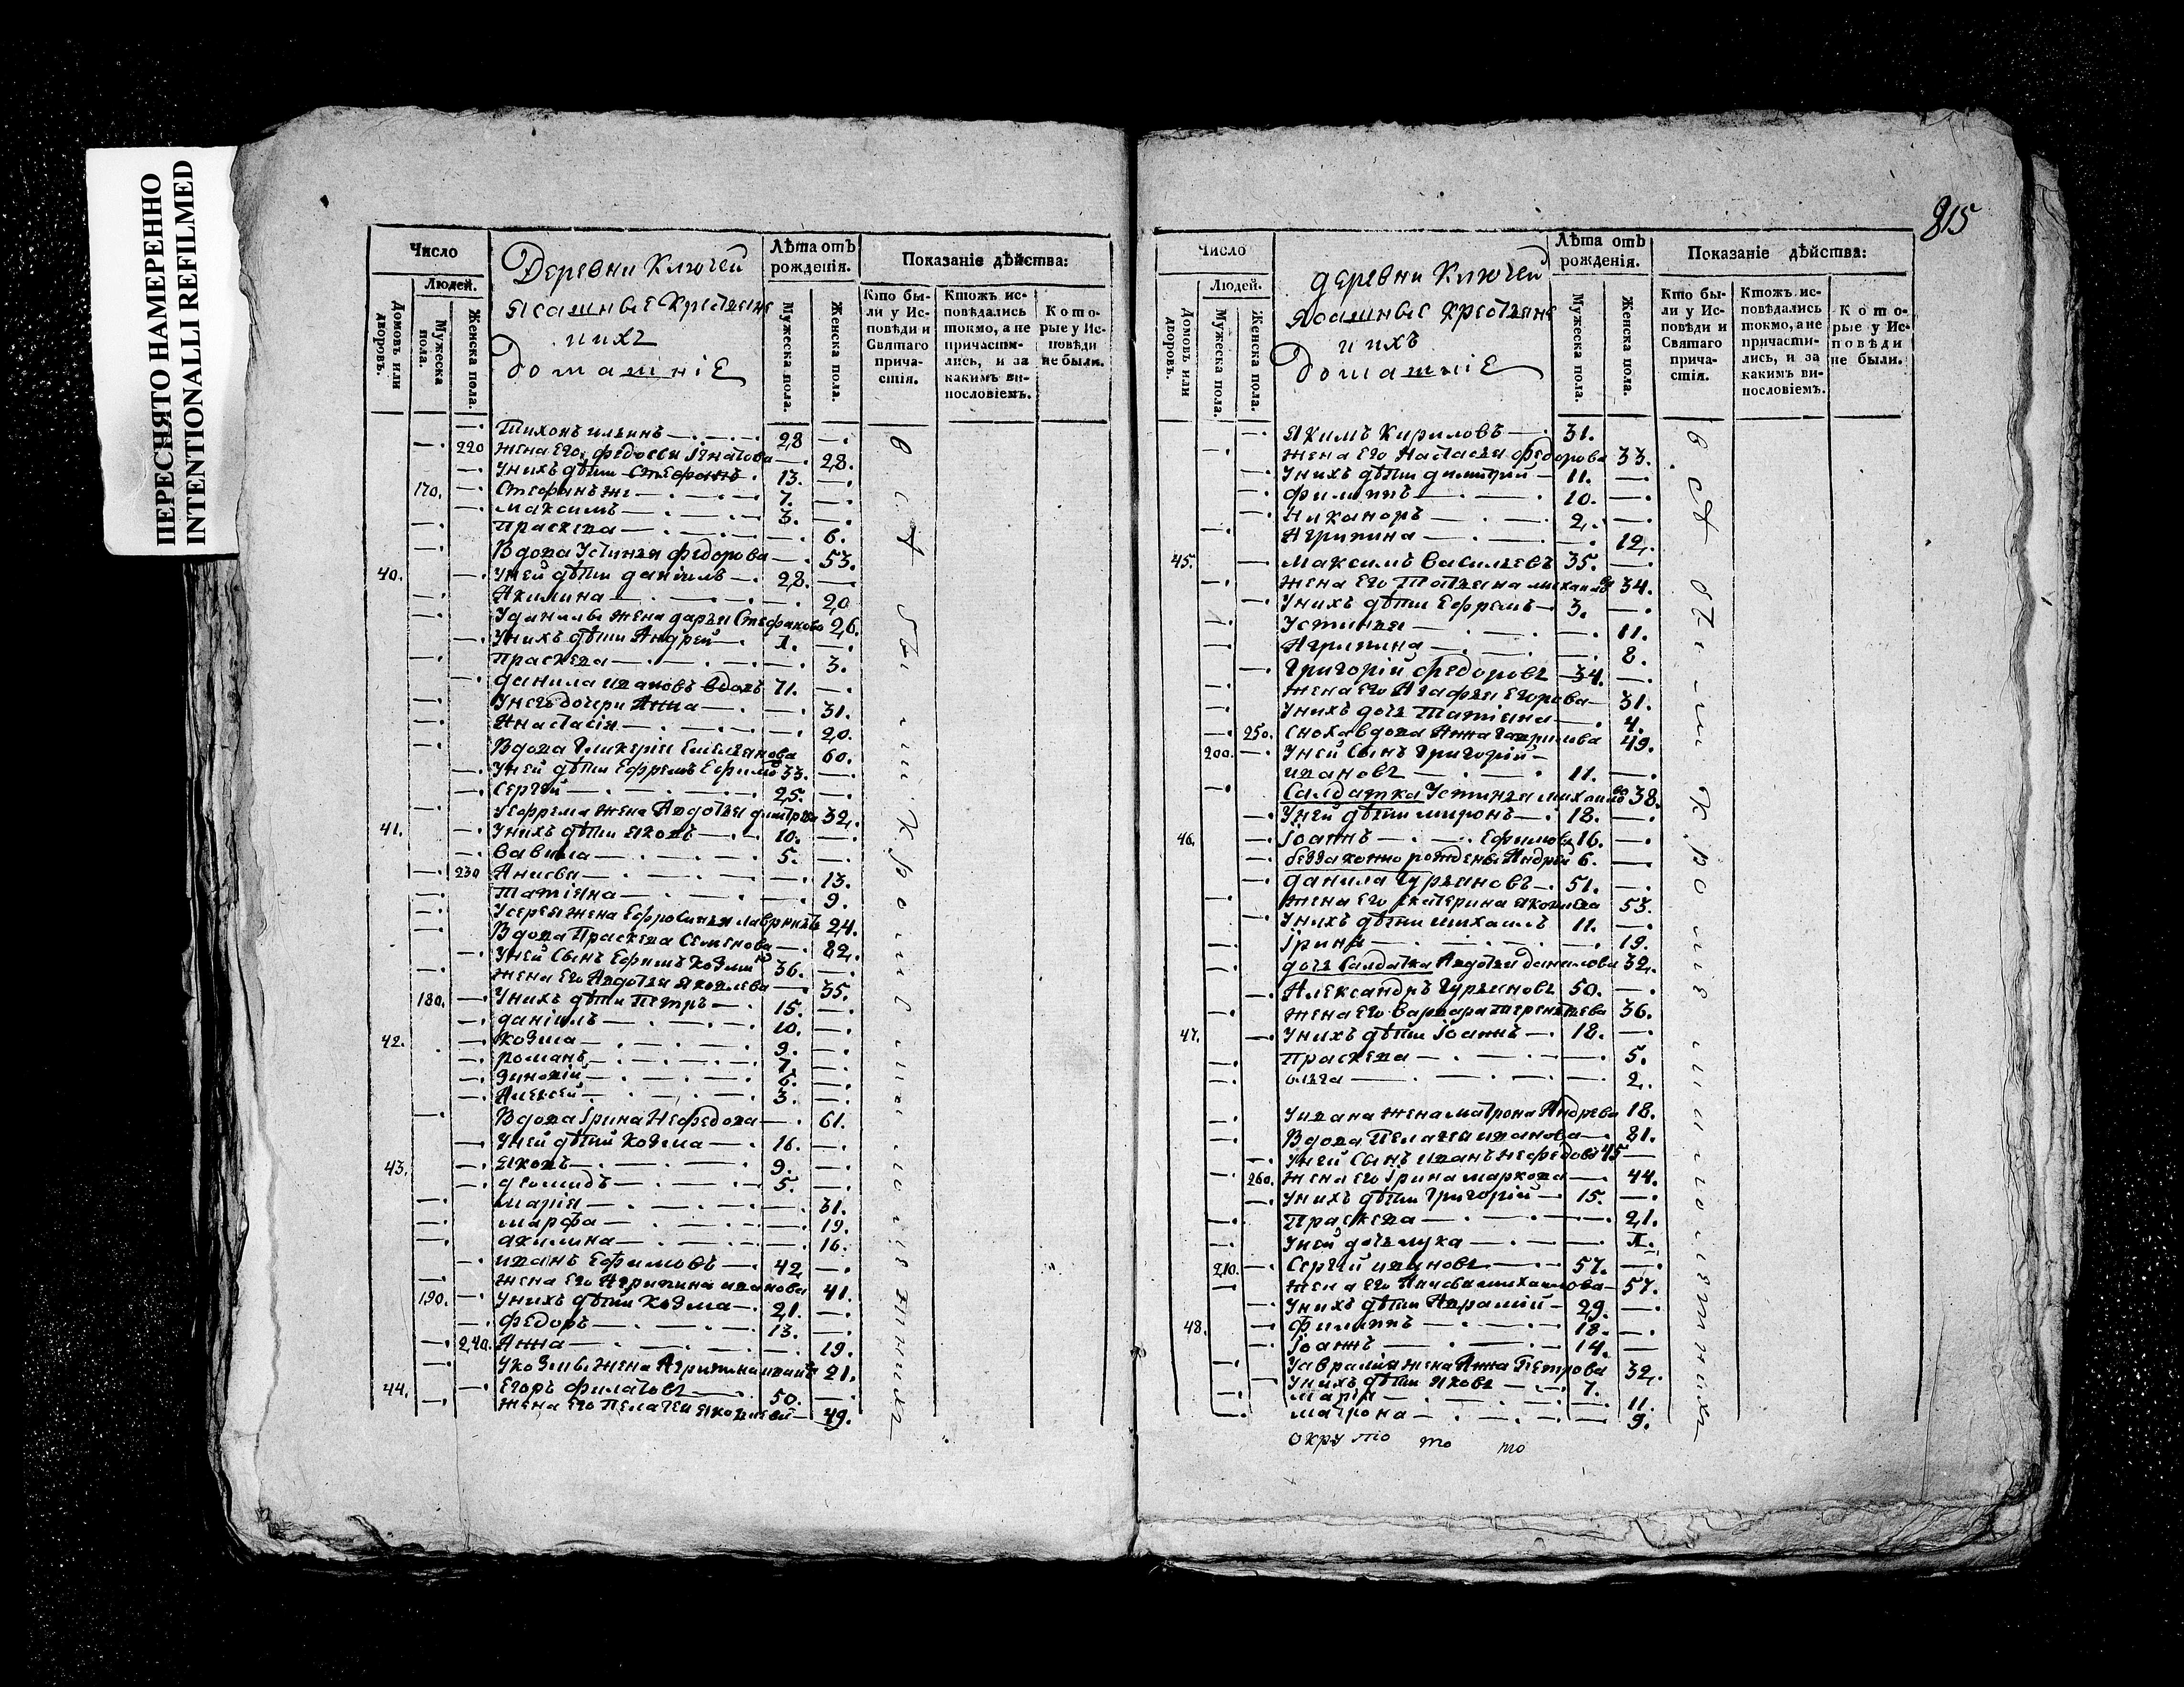 ПЕРЕСНЯТО НАМЕРЕННО
INTENTIONALLI REFILMED
Число
Людей.
Домовъ или дворовъ.
Мужеска пола.
Женска пола.
Деревни Ключей
ясашные крестьяне
и ихъ
домашніе
Лѣта отъ рожденія.
Мужеска пола.
Женска пола.
Показаніе дѣйства:
Кто бы-
ли у Ис-
повѣди и
Святаго
прича-
стія.
Ктожъ ис-
повѣдались
токмо, а не
причасти-
лись, и за
какимъ ви-
нословіемъ.
Кото-
рые у Ис-
повѣди
не были.
Тихонъ ильинъ 28
220 жена его федосья Игнатова 28.
У нихъ дѣти Стефанъ 13.
170. Стефанъ же 7.
Максимъ 3.
Праскева 6.
Вдова Устинья федорова 53.
40. У ней дѣти даніилъ 28.
Акилина 20
У данилы жена дарья Стефанова 26.
У нихъ дѣти Андрей 1.
Праскева 3.
данила ивановъ вдовъ 71.
У него дочери Анна 31.
Анастасія 20.
Вдова Гликерія Емельянова 60.
У ней дѣти Ефремъ Ефимо 33.
Сергей 25.
У ефрема жена Авдотья дмитрева 32.
41. У нихъ дѣти Яковъ 10.
Вавила 5.
230 Анисья 13.
Татіяна 9.
У сергея жена Ефросинья лаврентьева 24.
Вдова Праскева Семенова 82.
У ней Сынъ Ефимъ Козминъ 36.
жена его Авдотья яковлева 35.
180. У нихъ дѣти Петръ 15.
даніилъ 10.
42. Козма 9.
романъ 7.
Зиновій 6.
Алексей 3.
Вдова Ірина Нефедова 61.
У ней дѣти Козма 16.
43. Яковъ 9.
деомидъ 5.
марія 31.
марфа 19.
акилина 16.
иванъ Ефимовъ 42
жена его Агрипина иванова 41.
190. У нихъ дѣти Козма 21.
федоръ 13.
240. Анна 19.
У козмы жена Агрипина 21.
44. Егоръ филатовъ 50.
жена его Пелагея яковлева 49.
всѣ были
815
Число
Людей.
Домовъ или дворовъ.
Мужеска пола.
Женска пола.
деревни Ключей
ясашные крестьяне
и ихъ
домашніе
Лѣта отъ рожденія.
Мужеска пола.
Женска пола.
Показаніе дѣйства:
Кто бы-
ли у Ис-
повѣди и
Святаго
прича-
стія.
Ктожъ ис-
повѣдались
токмо, а не
причасти-
лись, и за
какимъ ви-
нословіемъ.
Кото-
рые у Ис-
повѣди
не были.
Якимъ Кириловъ 31.
жена его Настасья федорова 33.
У нихъ дѣти димитрій 11.
филиппъ 10.
Никаноръ 2.
Агрипина 12.
45. Максимъ Васильевъ 35.
жена его Татьяна михаилова 34.
У нихъ дѣти Ефремъ 3.
Устинья 11.
Агрипина 8.
Григорій федоровъ 34.
жена его Агафья Егорова 31.
У нихъ дочь Татіяна 4.
250. Сноха вдова Анна Гаврилова 49.
200. У ней Сынъ Григорій
ивановъ 11.
Салдатка Устинья михаилова 38.
У ней дѣти миронъ 18.
46. Іоаннъ Ефимовы 16.
беззаконно рожденъ Андрей 6.
данила Гурьяновъ 51.
жена его Екатерина яковлева 53.
У нихъ дѣти михаилъ 11.
Ірина 19.
дочь Салдатка Авдотья данилова 32.
Александръ Гурьяновъ 50.
жена его Варвара терентьева 36.
47. У нихъ дѣти Іоаннъ 18.
Праскева 5.
ольга 2.
У ивана жена матрона Андрева 18.
Вдова Пелагея иванова 81.
У ней Сынъ иванъ нефедовъ 45
260. жена его Ірина маркова 44.
У нихъ дѣти Григорій 15.
Праскева 21.
У ней дочь 1.
210. Сергей ивановъ 57.
жена его Анисья михаилова 57.
У нихъ дѣти Аврамій 29.
48. филиппъ 18.
Іоаннъ 14.
У аврамія жена Анна Петрова 32.
У нихъ дѣти яковъ 7.
марія 11.
матрона 9.
всѣ